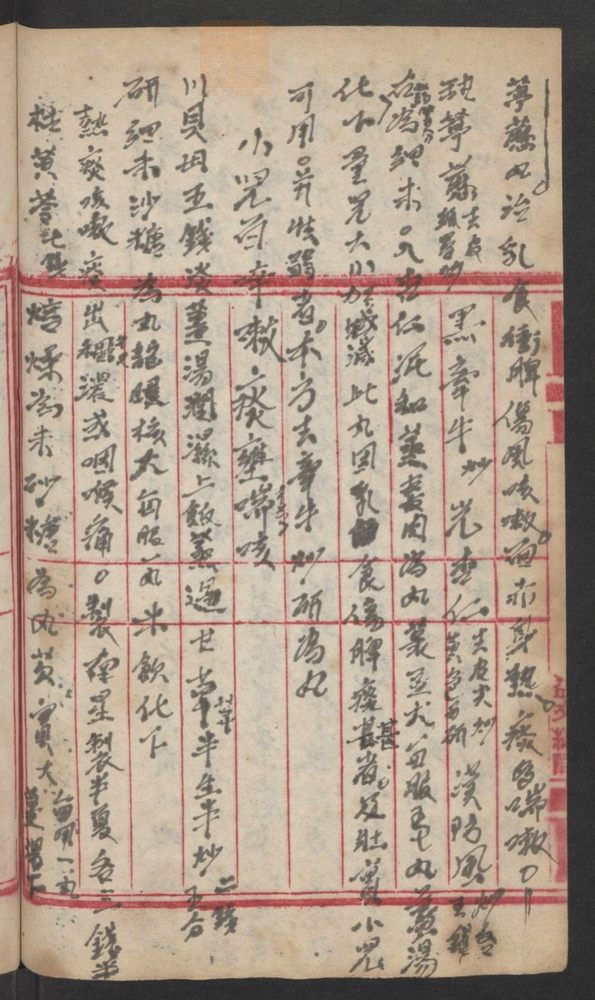 葶藶丸治乳食衝脾傷風咳嗽面赤身熱痰多喘嗽
葶藶去皮紙冐炒 黑牽牛炒 光杏仁去皮尖炒黄色另研 漢防風
右為細末〇入杏仁泥和蒸棗肉為丸菉豆大每服五七丸薑湯
化下量兒大小加減此丸因乳食傷脾痰甚者及壯實小兒
可用〇若怯弱者本方去牽牛炒研為丸
小兒百晬嗽痰壅喘咳
川貝母五錢淡薑湯潤濕上飯蒸過甘草半生半炒二錢五分
研細末沙糖為丸龍眼核大每服一丸米飲化下
熱痰咳嗽痰出稠濃或咽喉痛〇製南星製半夏各三錢半
黄芩七錢焙燥為末砂糖為丸芡實大每用一丸薑湯下